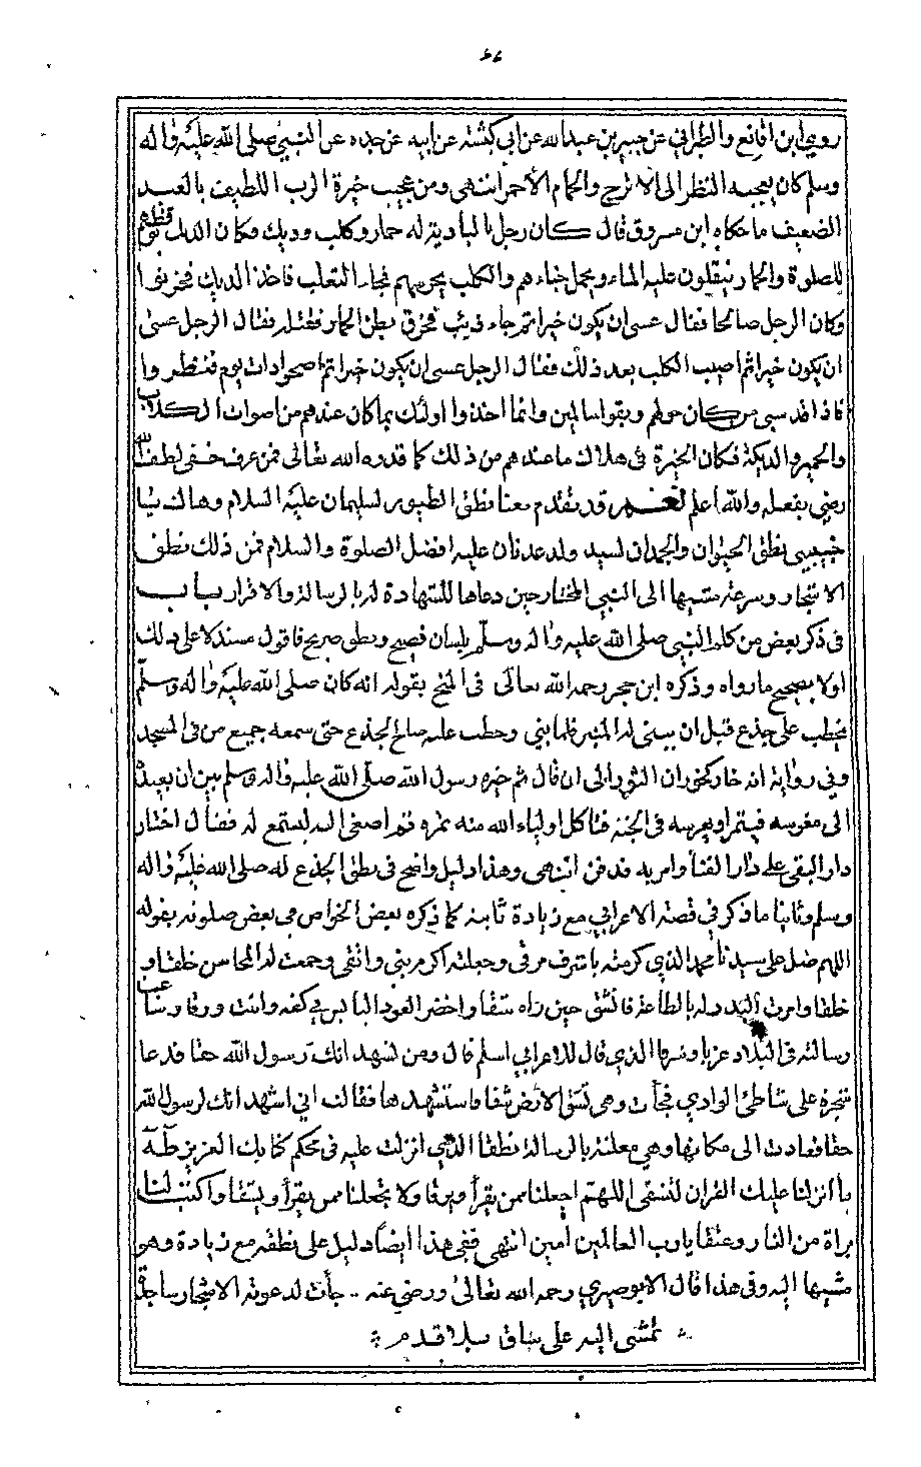 ٤٦
روي ابن قانع والطبراني عن جبير بن عبدالله عن ابي كبشة عن ابيه عن جده عن النبي صلى الله عليه واله
وسلم كان يعجبه النظر الى الاترج والحمام الأحمر انتهى ومن عجيب خيرة الرب اللطيف بالعبد
الضعيف ما حكاه ابن مسروق قال كان رجل بالبادية له حمار وكلب وديك فكان الديك يوقظهم
للصلوة والحمار ينقلون عليه الماء ويحمل خباءهم والكلب يحرسهم فجاء الثعلب فاخذ الديك فحزنوا
وكان الرجل صالحا فقال عسى ان يكون خيرا ثم جاء ذيب فخرق بطن الحمار فقتله فقال الرجل عسى
ان يكون خيرا ثم اصيب الكلب بعد ذلك فقال الرجل عسى ان يكون خيرا ثم اصبحوا ذات يوم فنظروا
فاذا قد سبي من كان حولهم وبقوا سالمين وانما اخذوا اولئك بما كان عندهم من اصوات الكلاب
والحمير والديكة فكان الخيرة في هلاك ما عندهم من ذلك كما قدره الله تعالى فمن عرف خفي لطف الله
رضي بفعله والله أعلم نعم قد يقدم معنا نطق الطيور لسليمان عليه السلام وهاك يا
حبيبي نطق الحيوان والجمادان لسيد ولد عدنان عليه افضل الصلوة والسلام فمن ذلك نطق
الاشجار وسرعة مشيها الى النبي المختار حين دعاها للشهادة له بالرسالة والاقرار باب
في ذكر بعض من كلم النبي صلى الله عليه واله وسلم بلسان فصيح ونطق صريح فاقول مستدلا على ذلك
اولا بصحيح ما رواه وذكره ابن حجر رحمه الله تعالى في المنح بقوله انه كان صلى الله عليه واله وسلم
يخطب على جذع قبل ان يبنى له المنبر فلما بني وخطب عليه صاح الجذع حتى سمعه جميع من في المسجد
وفي رواية انه خار كخوران الثور الى ان قال ثم خيره رسول الله صلى الله عليه واله وسلم بين ان يعيده
الى مغرسه فيثمر او يغرسه في الجنة فتاكل اولياء الله منه ثمره ثم اصغى اليه ليستمع له فقال اختار
دار البقى على دار الفنا وامر به فدفن انتهى وهذا دليل واضح في نطق الجذع له صلى الله عليه واله
وسلم وثانيا ما ذكر في قصة الاعرابي مع زيادة ثابتة كما ذكره بعض الخواص في بعض صلوته بقوله
اللهم صل على سيدنا محمد الذي كرمته باشرف مرقى وجعلته اكرم بني وانقى وجمعت له المحاسن خلقا و
خلقا وامرت البيد دله بالطاعة فانشق حين راه شقا واخضر العود اليابس في كفه وانبت ورقا وشاعت
رسالته في البلاد غربا وشرقا الذي قال للاعرابي اسلم قال ومن يشهد انك رسول الله حقا فدعا
شجرة على شاطئ الوادي فجأت وهي تشق الارض شقا واستشهدها فقالت اني اشهد انك لرسول الله
حقا فعادت الى مكانها وهي معلنة بالرسالة نطقا الذي انزلت عليه في محكم كتابك العزيز طه
ما انزلنا عليك القران لتشقى اللهم اجعلنا ممن يقرأ ويرقا ولا تجعلنا ممن يقرأ ويشقا واكتب لنا
براة من النار وعتقا يا رب العالمين امين انتهى ففي هذا ايضا دليل على نطقه مع زيادة وهو
مشيها اليه وفي هذا قال الابوصيري رحمه الله تعالى ورضي عنه .. جأت لدعوته الاشجار ساجدة
تمشي اليه على ساق بلا قدم